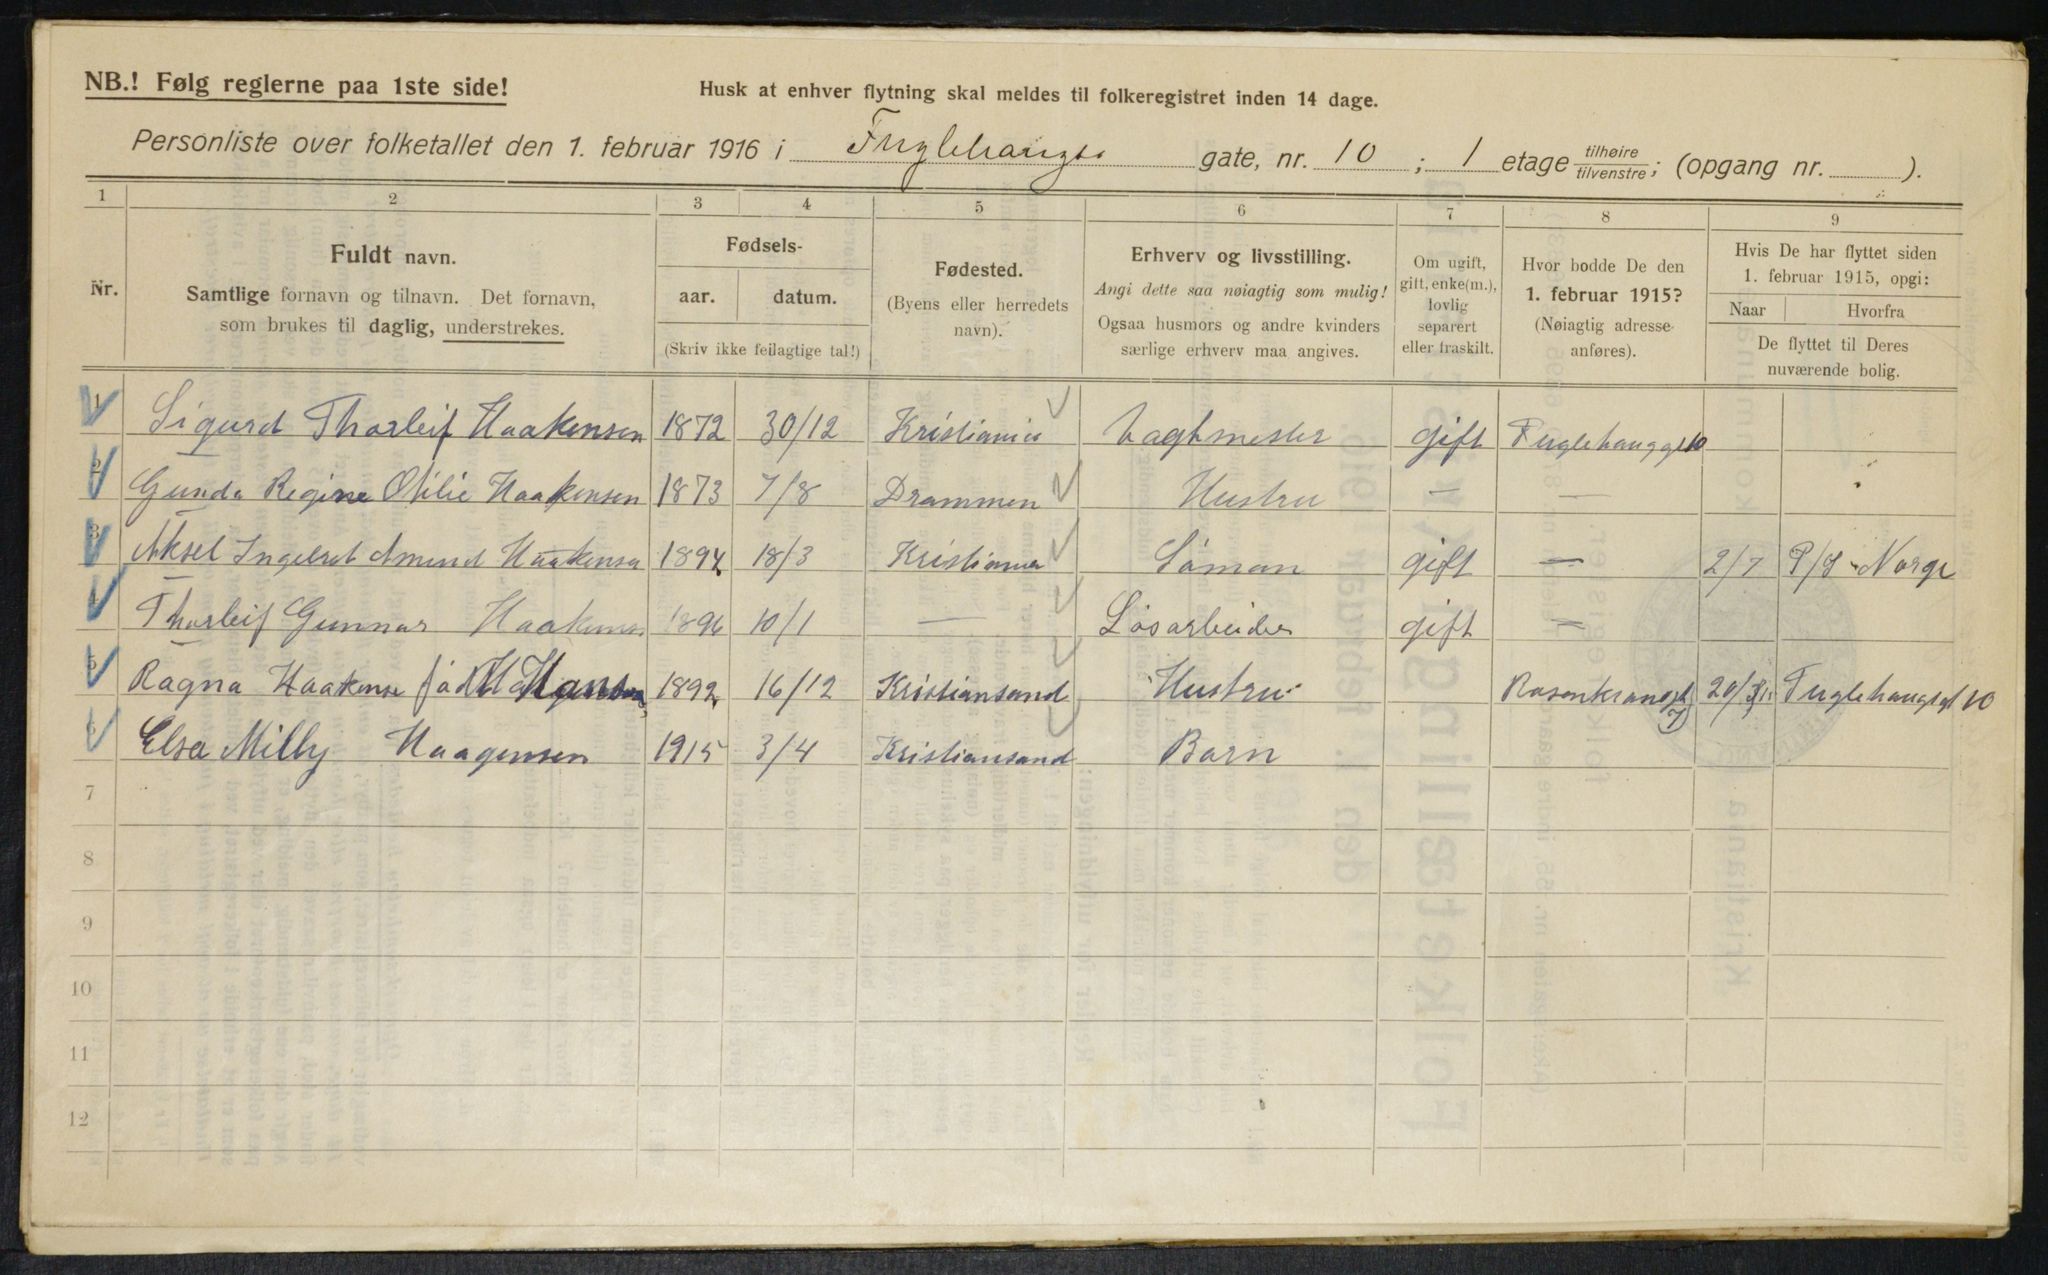 NB.! Følg reglerne paa 1ste side!
Husk at enhver flytning skal meldes til folkeregistret inden 14 dage.
Personliste over folketallet den 1. februar 1916 i Fuglehaugs gate, nr. 10 ; 1 etage tilhøire tilvenstre; (opgang nr. ).
1 2 3 4 5 6 7 8 9
Nr.
Fuldt navn.
Samtlige fornavn og tilnavn. Det fornavn,
som brukes til daglig, understrekes.
Fødsels-
aar. datum.
(Skriv ikke feilagtige tal!)
Fødested.
(Byens eller herredets
navn).
Erhverv og livsstilling.
Angi dette saa nøiagtig som mulig!
Ogsaa husmors og andre kvinders
særlige erhverv maa angives.
Om ugift,
gift, enke(m.),
lovlig
separert
eller fraskilt.
Hvor bodde De den
1. februar 1915?
(Nøiagtig adresse
anføres).
Hvis De har flyttet siden
1. februar 1915, opgi:
Naar Hvorfra
De flyttet til Deres
nuværende bolig.
1 Sigurd Thorleif Haakensen 1872 30/12 Kristiania Vagtmester gift Fuglehauggt 10
2 Gunda Regine Otilie Haakensen 1873 7/8 Drammen Hustru — —
3 Aksel Amund Haakensen 1894 18/3 Kristiania Söman gift — 2/7 Norge
4 Thorleif Gunnar Haakensen 1896 10/1 — Lösarbeider gift —
5 Ragna Haakense född Hansen 1892 16/12 Kristiansand Hustru Rosenkransgt 7 20/ Fuglehaugsgt 10
6 Elsa Milly Haagensen 1915 3/4 Kristiansand Barn
7
8
9
10
11
12